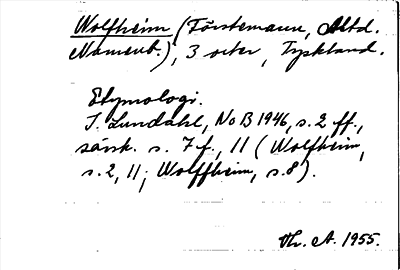 Wolfheim (Förstemann, Altd.
Namenb.), 3 orter, Tyskland.
Etymologi.
I. Lundahl, NoB 1946, s. 2 ff.,
särsk. s. 7 f., 11 (Wolfheim,
s. 2, 11; Wolffheim, s. 8).
Thr. A. 1955.